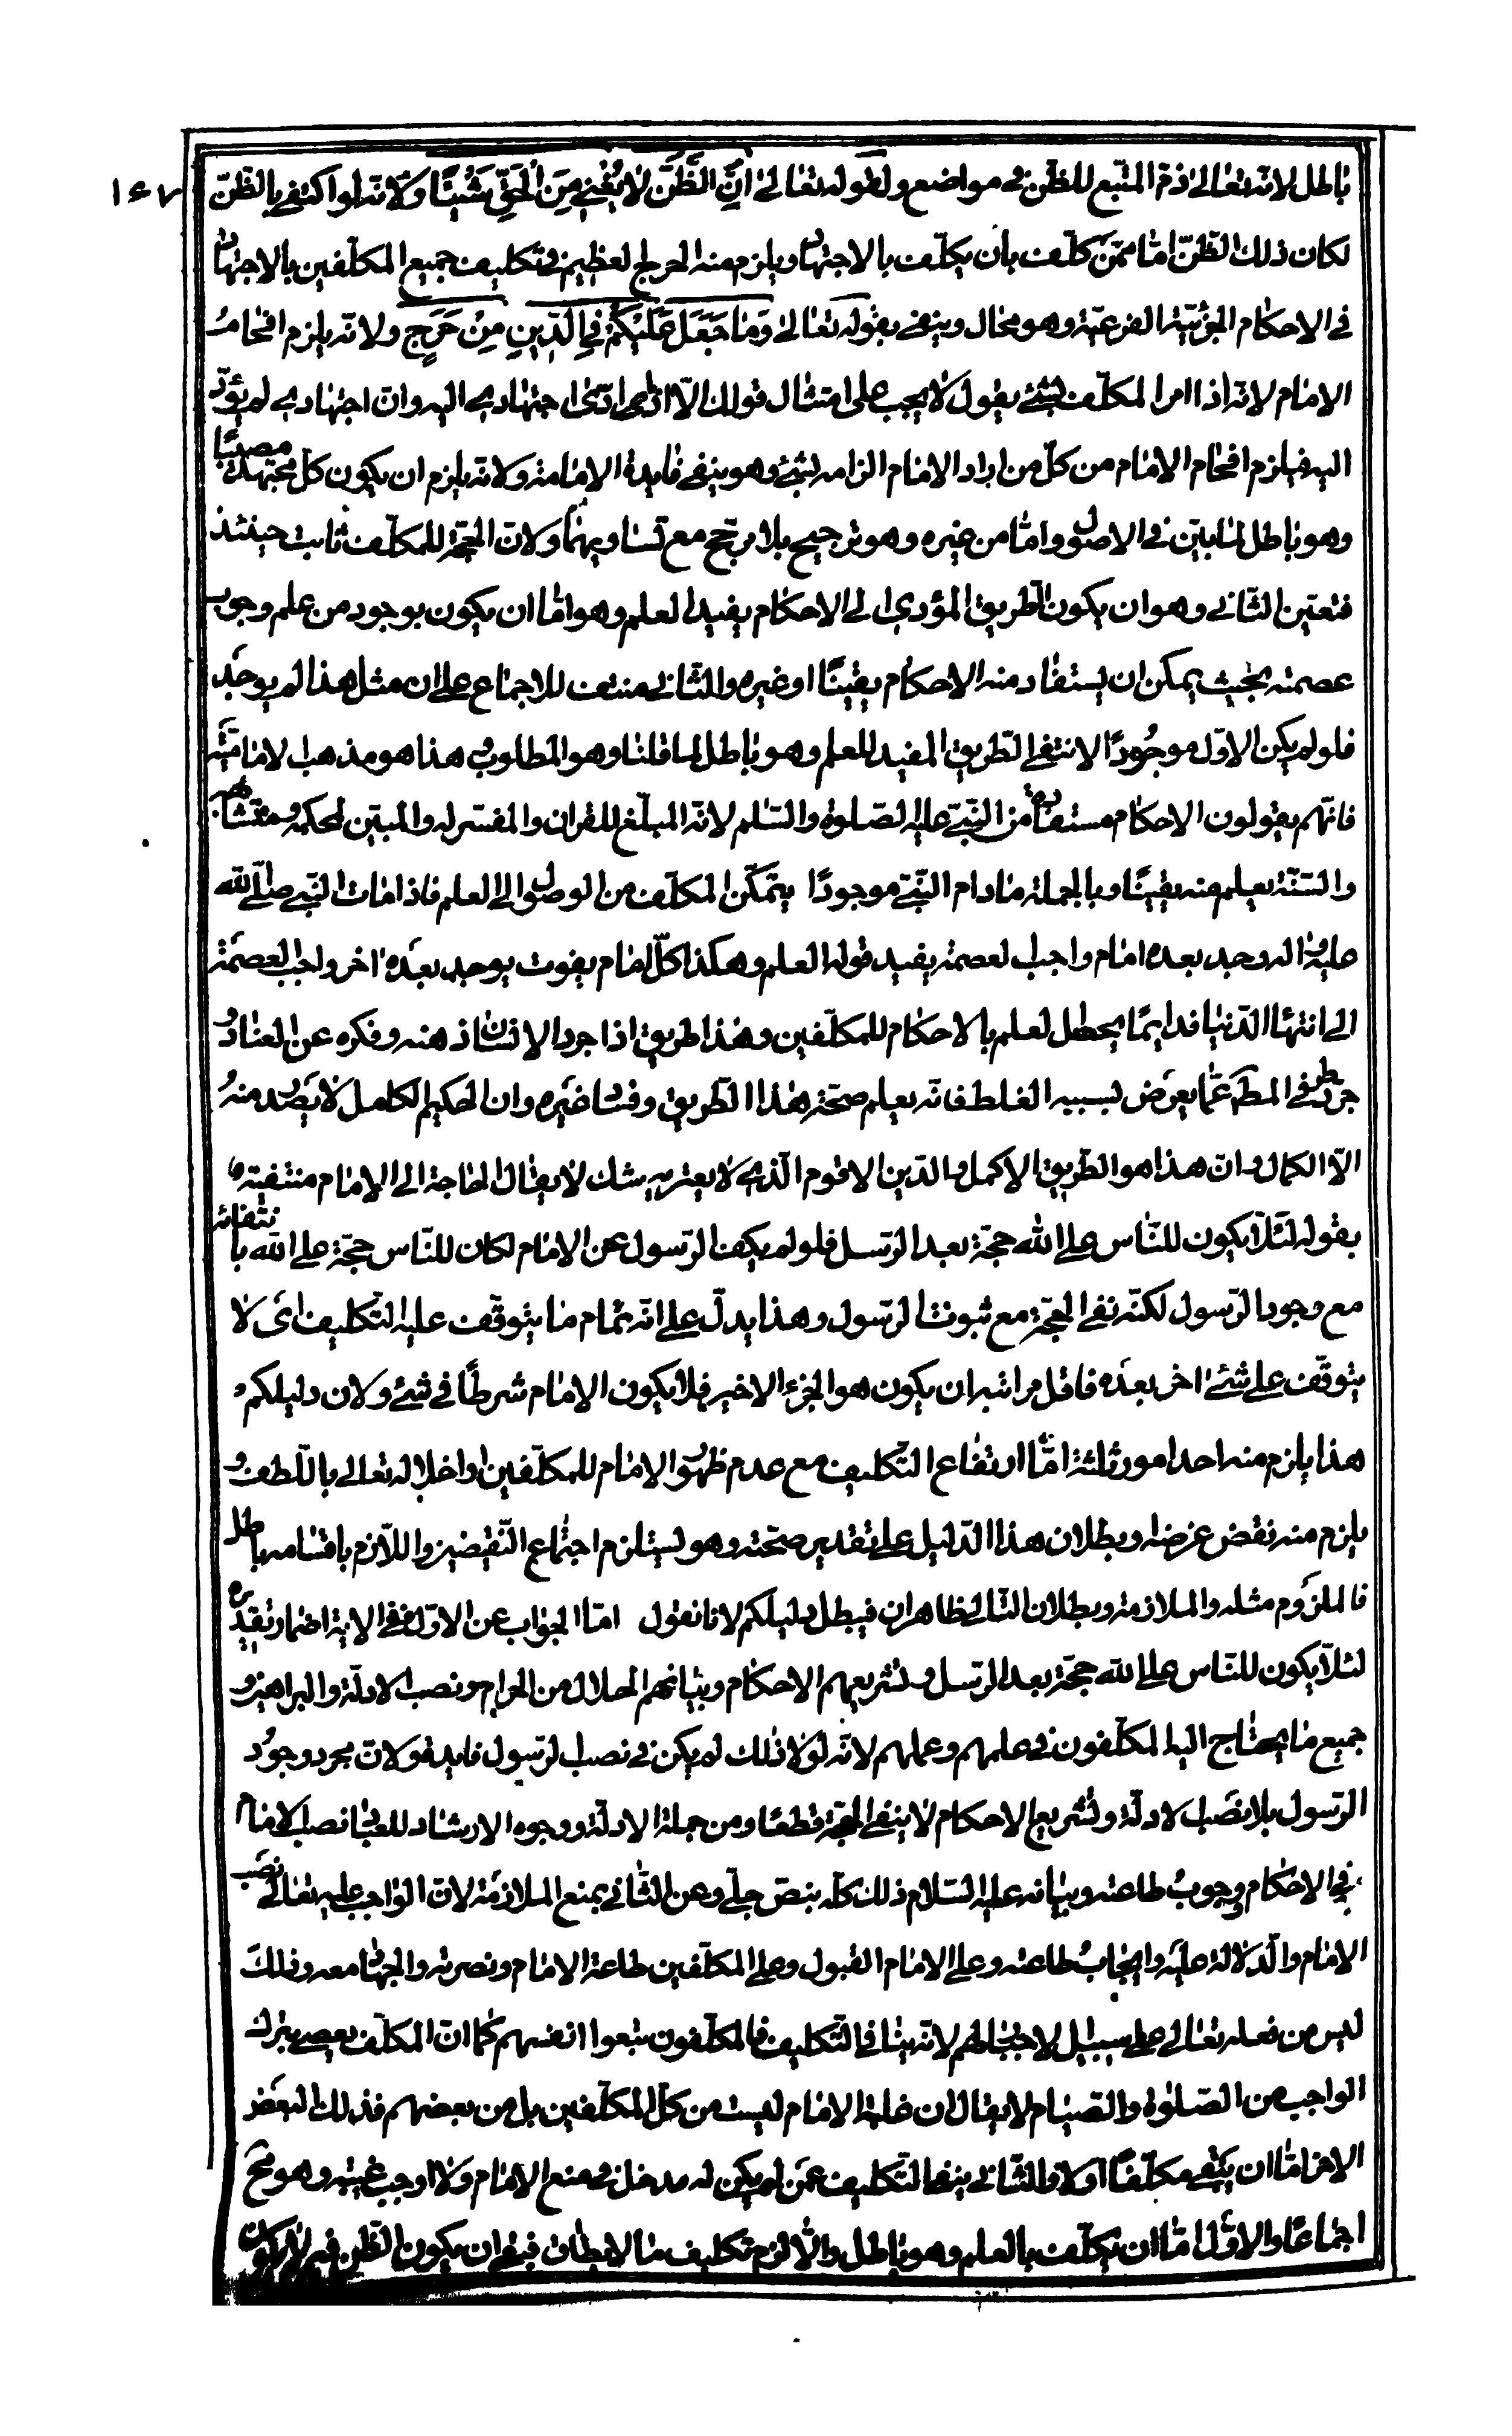 ١٤٧
باطل لانه تعالى ذمّ المتبع للظنّ فى مواضع ولقوله تعالى انّ الظَّنَّ لا يُغْنِي مِنَ الْحَقِّ شَيْئًا ولانّه لو اكتفى بالظنّ
لكان ذلك الظّنّ امّا ممّن كلّف بأن يكلّف بالاجتهاد ويلزم منه الحرج العظيم فى تكليف جميع المكلّفين بالاجتهاد
فى الاحكام الجزئيّة الفرعيّة وهو محال وينفى بقوله تعالى وَمَا جَعَلَ عَلَيْكُمْ فِي الدِّينِ مِنْ حَرَجٍ ولانّه يلزم افحام
الامام لانّه اذا امر المكلّف بشئ يقول لا يجب علىّ امتثال قولك الّا اذا ادّى اجتهادى اليه وانّ اجتهادى لم يؤدّ
اليه فيلزم افحام الامام من كلّ من اراد الامام الزامه بشئ وهو ينفى فايدة الامامة ولانّه يلزم ان يكون كلّ مجتهد مصيبًا
وهو باطل لما بيّن فى الاصول وامّا من غيره وهو ترجيح بلا مرجّح مع تساويهما ولانّ الحجّة للمكلّف ثابت حينئذ
فتعيّن الثّانى وهو ان يكون الطريق المؤدى الى الاحكام يفيد العلم وهو امّا ان يكون بوجود من علم وجوب
عصمته بحيث يمكن ان يستفاد منه الاحكام يقينًا او غيره والثّانى منتف للاجماع على ان مثل هذا لم يوجد
فلو لم يكن الاوّل موجودًا لانتفى الطّريق المفيد للعلم وهو باطل لما قلنا وهو المطلوب هذا هو مذهب الاماميّة
فانّهم يقولون الاحكام مستفادة من النّبىّ عليه الصّلوة والسّلم لانّه المبلّغ للقران والمفسّر له والمبيّن لمحكمه ومتشابهه
والسّنّة يعلم منه يقينًا وبالجملة ما دام النّبىّ موجودًا يتمكّن المكلّف من الوصول الى العلم فاذا مات النّبى صلّى الله
عليه واله وجد بعده امام واجب العصمة يفيد قوله العلم وهكذا كلّ امام يفوت يوجد بعده اخر واجب العصمة
الى انتهاء الدّنيا فدايمًا يحصل العلم بالاحكام للمكلّفين وهذا طريق اذا جرد الانسان ذهنه وفكره عن العناد و
جرد نظره فى المط عمّا يعرض بسببه الغلط فانّه يعلم صحّة هذا الطّريق وفساد غيره وان الحكيم الكامل لا يصدر منه
الّا الكمال وانّ هذا هو الطّريق الاكمل والدّين الاقوم الّذى لا يعتريه شك لا يقال الحاجة الى الامام منتفية
بقوله لئلّا يكون للنّاس على الله حجّة بعد الرّسل فلو لم يكف الرّسول عن الامام لكان للنّاس حجّة على الله بانتفائه
مع وجود الرّسول لكنّه نفى الحجّة مع ثبوت الرّسول وهذا يدلّ على انّه تمام ما يتوقّف عليه التّكليف اى لا
يتوقّف على شئ اخر بعده فاقل مراتبه ان يكون هو الجزء الاخير فلا يكون الامام شرطًا فى شئ ولان دليلكم
هذا يلزم منه احد امور ثلثة امّا ارتفاع التّكليف مع عدم ظهور الامام للمكلّفين او اخلاله تعالى باللّطف و
يلزم منه نقض غرضه وبطلان هذا الدّليل على تقدير صحّته وهو يستلزم اجتماع النّقيضين واللّازم باقسامه باطل
فالملزوم مثله والملازمة وبطلان التالى ظاهران فيبطل دليلكم لانا نقول امّا الجواب عن الاوّل ففى الاية اضمار تقديره
لئلّا يكون للنّاس على الله حجّة بعد الرّسل وتشريعهم الاحكام وبيانهم الحلال من الحرام ونصب الادلّة والبراهين و
جميع ما يحتاج اليه المكلّفون فى علمهم وعملهم لانّه لولا ذلك لم يكن فى نصب الرّسول فايدة ولانّ مجرد وجود
الرّسول بلا نصب الادلّة وتشريع الاحكام لا ينفى الحجّة قطعًا ومن جملة الادلّة ووجوه الارشاد نصب الامام
فى الاحكام ووجوب طاعته وبيانه عليه السّلام ذلك كلّه بنصّ جلىّ وعن الثّانى بمنع الملازمة لانّ الواجب عليه تعالى نصب
الامام والدّلالة عليه وايجاب طاعته وعلى الامام القبول وعلى المكلّفين طاعة الامام ونصرته والجهاد معه وذلك
ليس من فعله تعالى على سبيل الاجبار لهم لانّه ينافى التّكليف فالمكلّفون منعوا انفسهم كما انّ المكلّف يعصى بترك
الواجب من الصّلوة والصّيام لا يقال ان غيبة الامام ليست من كلّ المكلّفين بل من بعضهم فذلك البعض
الاخر امّا ان يبقى مكلّفًا او لا والثّانى ينفى التّكليف عمّن لم يكن له مدخل فى منع الامام ولا اوجب غيبته وهو مح
اجماعًا والاوّل امّا ان يكلّف بالعلم وهو باطل والّا لزم تكليف ما لا يطاق فبقى ان يكون الظّن